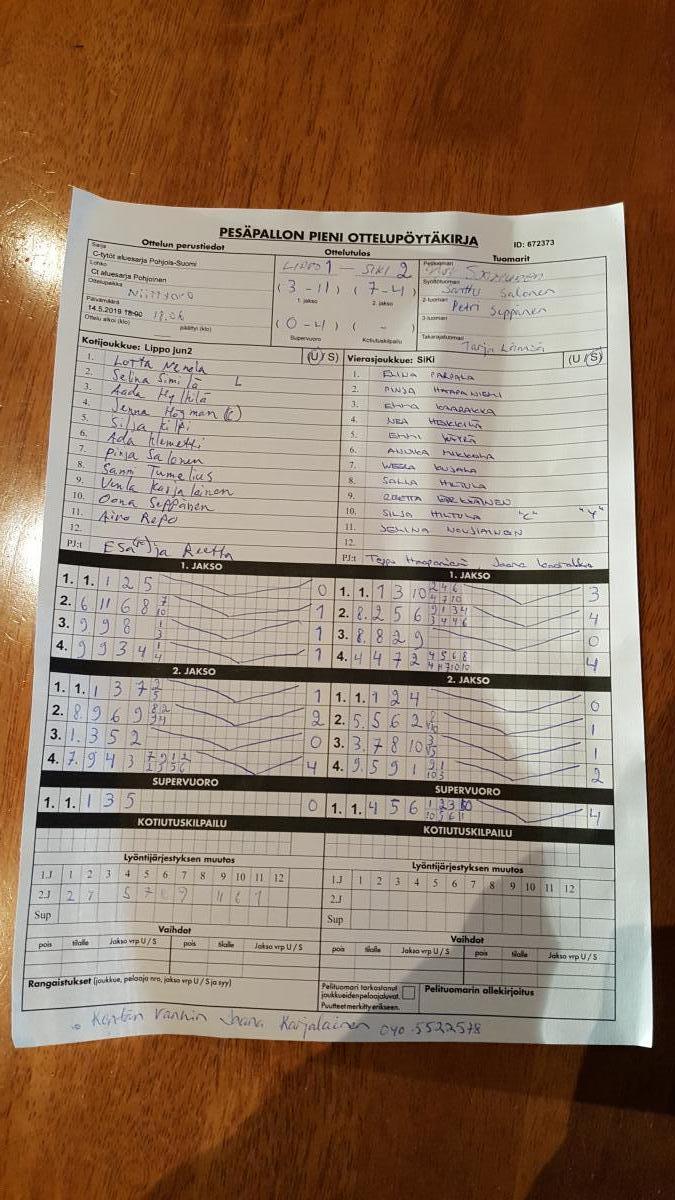 PESÄPALLON PIENI OTTELUPÖYTÄKIRJA
ID: 672373
Ottelun perustiedot
Sarja
C-tytöt aluesarja Pohjois-Suomi
Lohko
Ct aluesarja Pohjoinen
Ottelupaikka
Niittyaro
Päivämäärä
14.5.2019 18:00 18.06
Ottelu alkoi (klo) päättyi (klo)
Ottelutulos
LIPPO 1 - SIKI 2
(3-11) (7-4)
1. jakso 2. jakso
(0-4) ( - )
Supervuoro Kotiutuskilpailu
Tuomarit
Pelituomari
Syöttötuomari
Santtu Salonen
2-tuomari
Petri Seppänen
3-tuomari
Takarajatuomari
Tarja Lämsä
Kotijoukkue: Lippo Jun2 (U/S)
1. Lotta Nenola
2. Selina Similä L
3. Aada Hyttilä
4. Jenna Högman (C)
5. Silja Kilpi
6. Ada Klemetti
7. Pinja Salonen
8. Sanni Tumelius
9. Venla Karjalainen
10. Oona Seppänen
11. Aino Repo
12.
PJ:t Esa ja Reetta
Vierasjoukkue: SiKi (U/S)
1. ELINA PARPALA
2. PINJA HAAPANIEMI
3. EMMA KAARAKKA
4. NEA HEIKKILÄ
5. EMMI
6. ANNIKA MIKKOLA
7. VEERA KUJALA
8. SALLA HILTULA
9. ROOSA KÄRKKÄINEN
10. SILJA HILTULA "C" "Y"
11. JEMINA NOUSIAINEN
12.
PJ:t Teppo Haapaniemi, Jaana Kaarakka
1. JAKSO
1. 1. 1 2 5 0
2. 6 11 6 8 7 10 1
3. 9 9 8 1 3 1
4. 9 9 3 4 1 4 1
1. JAKSO
1. 1. 1 3 10 2 4 6 4 7 10 3
2. 8. 2 5 6 9 1 3 4 3 4 4 6 4
3. 8. 8 2 9 0
4. 4 4 7 2 4 5 6 8 4 4 7 10 10 4
2. JAKSO
1. 1. 1 3 7 2 5 1
2. 8. 9 6 9 8 2 9 4 2
3. 1. 3 5 2 0
4. 7. 9 4 3 4
2. JAKSO
1. 1. 1 2 4 0
2. 5. 5 6 2 1
3. 3. 7 8 10 3 5 1
4. 9. 5 9 1 9 1 10 3 2
SUPERVUORO
1. 1. 1 3 5 0
SUPERVUORO
1. 1. 4 5 6 4
KOTIUTUSKILPAILU
KOTIUTUSKILPAILU
Lyöntijärjestyksen muutos
1.J 1 2 3 4 5 6 7 8 9 10 11 12
2.J
Sup
Lyöntijärjestyksen muutos
1.J 1 2 3 4 5 6 7 8 9 10 11 12
2.J
Sup
Vaihdot
pois tilalle Jakso vrp U / S pois tilalle Jakso vrp U / S
Vaihdot
pois tilalle Jakso vrp U / S pois tilalle Jakso vrp U / S
Rangaistukset (joukkue, pelaaja nro, jakso vrp U / S ja syy)
Pelituomari tarkastanut
joukkueiden pelaajaluvat.
Puutteet merkitty erikseen.
Pelituomarin allekirjoitus
Kentän vanhin Jaana Karjalainen 040 5522578